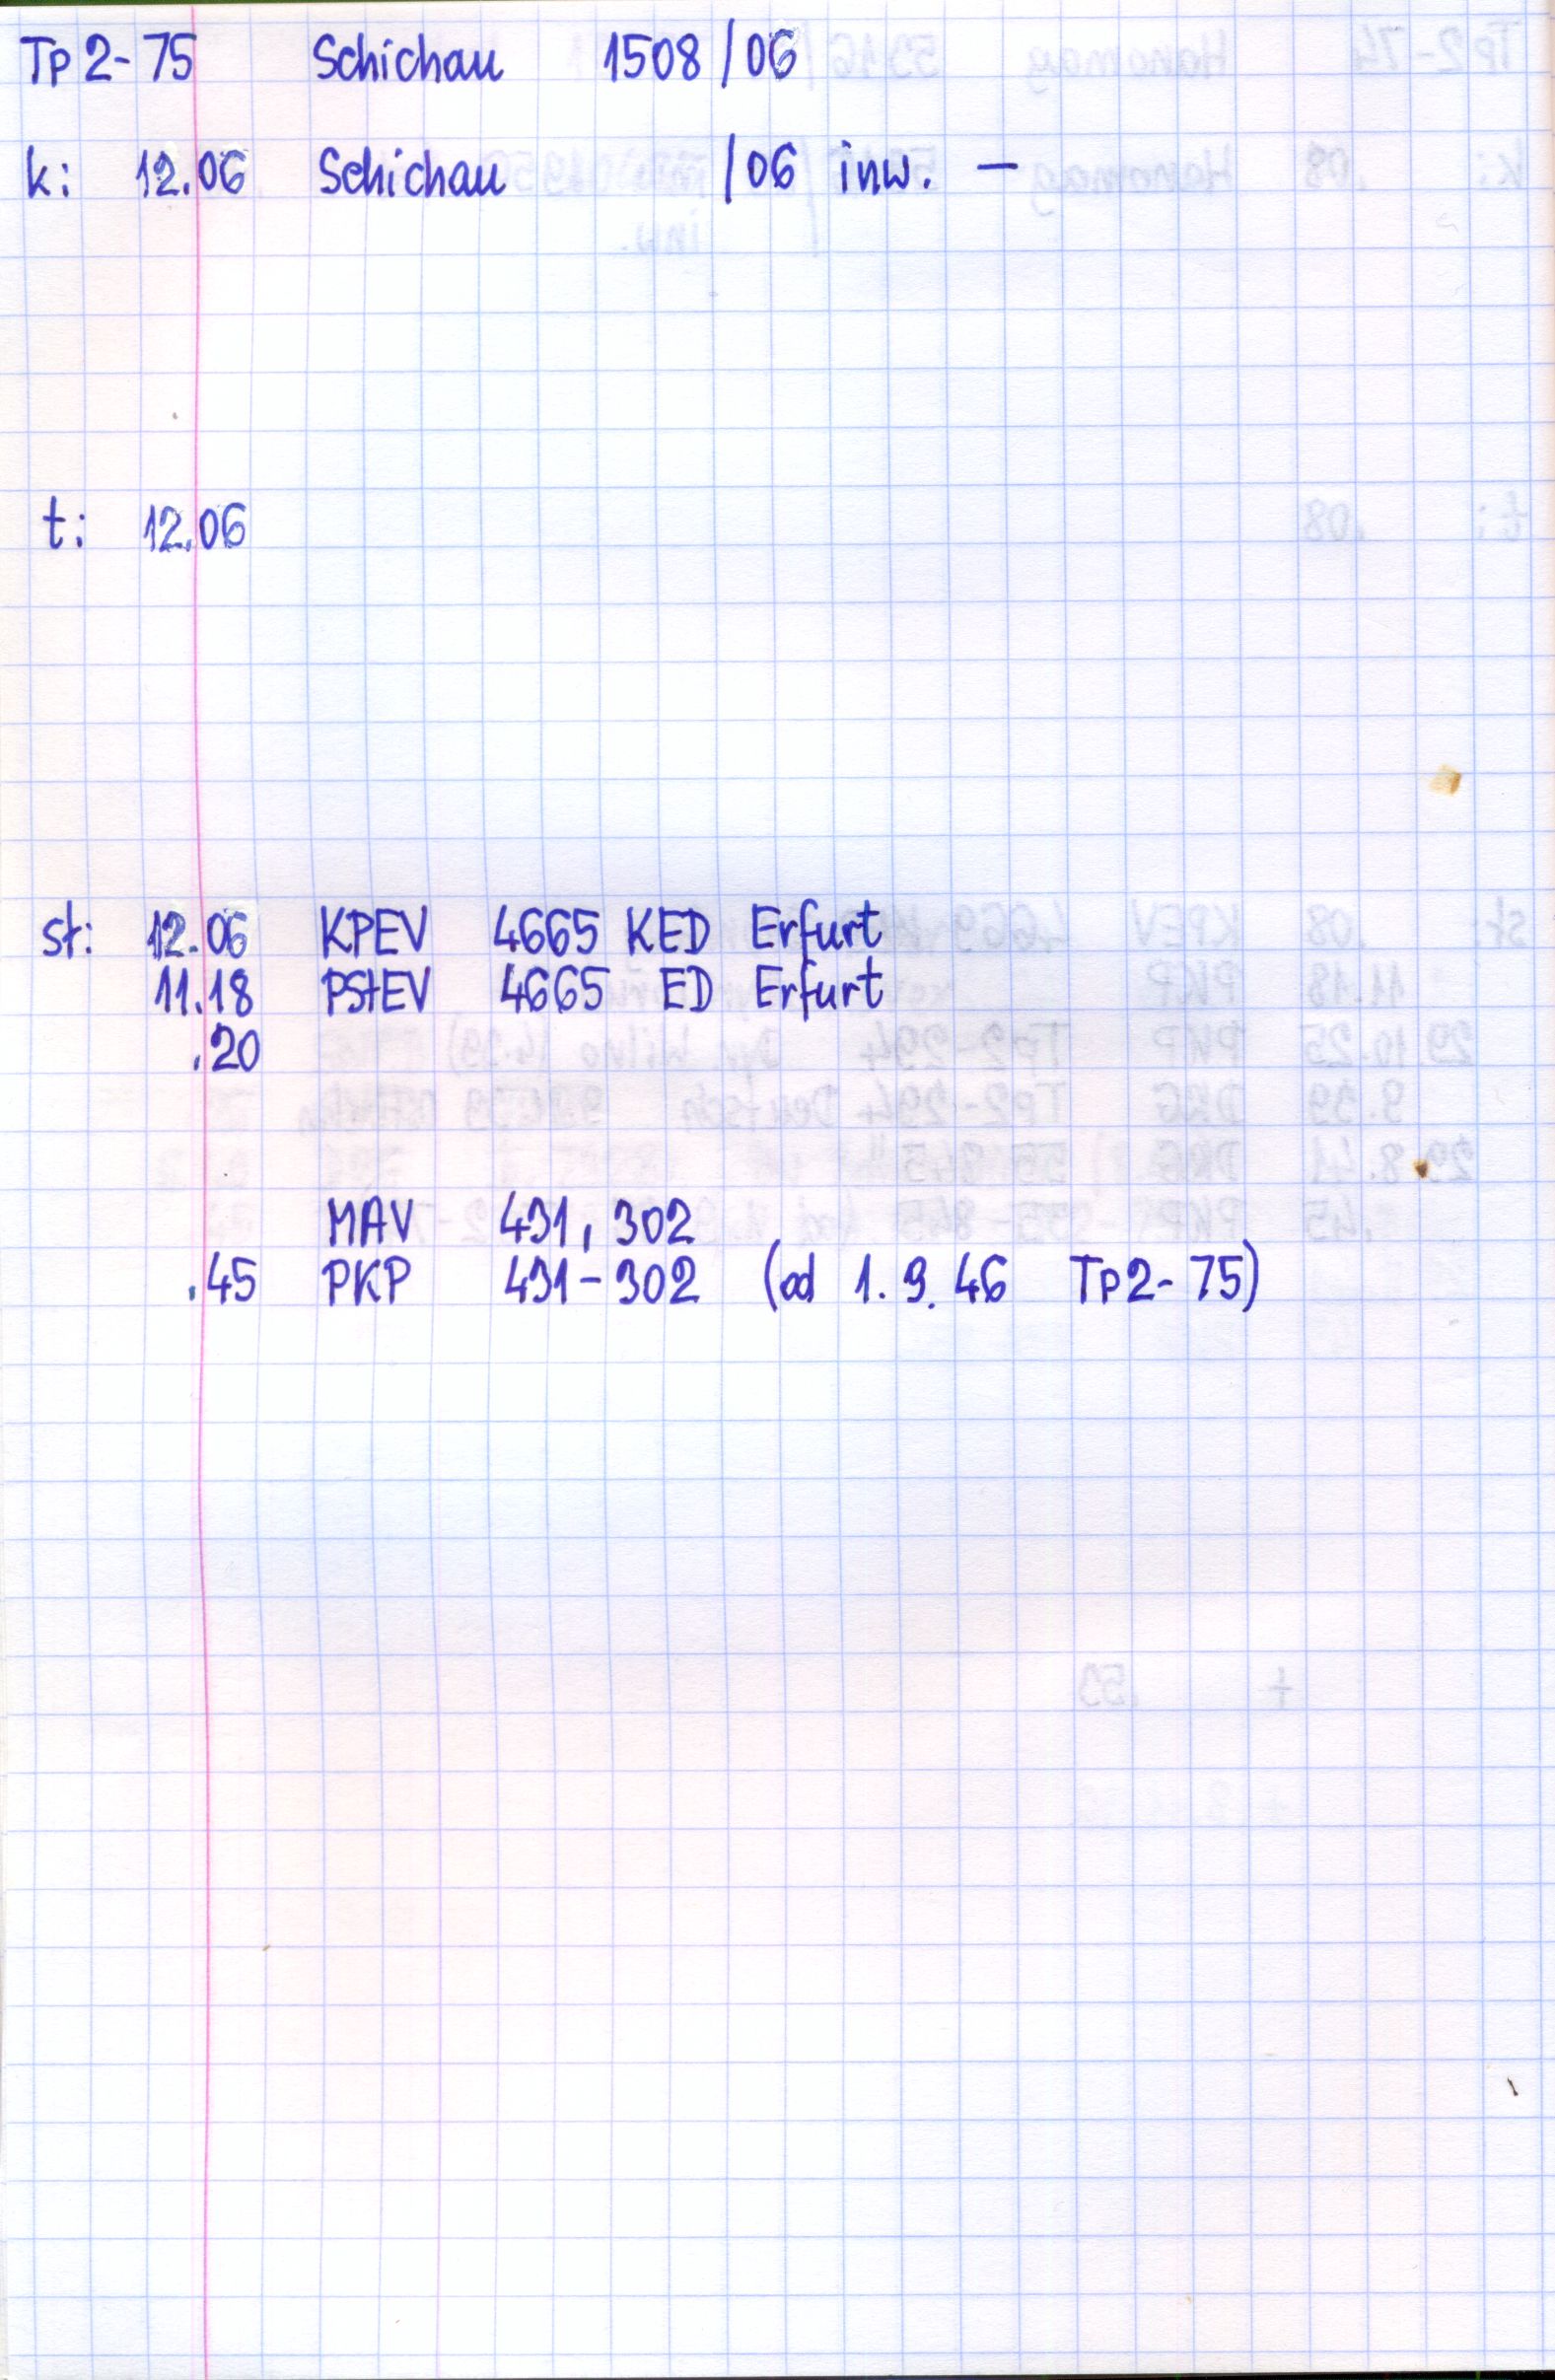 Tp2-75 Schichau 1508/06
k: 12.06 Schichau /06 inw. —
t: 12.06
st: 12.06 KPEV 4665 KED Erfurt
11.18 PStEV 4665 ED Erfurt
.20
MAV 431,302
.45 PKP 431-302 (od 1.9.46 Tp2-75)